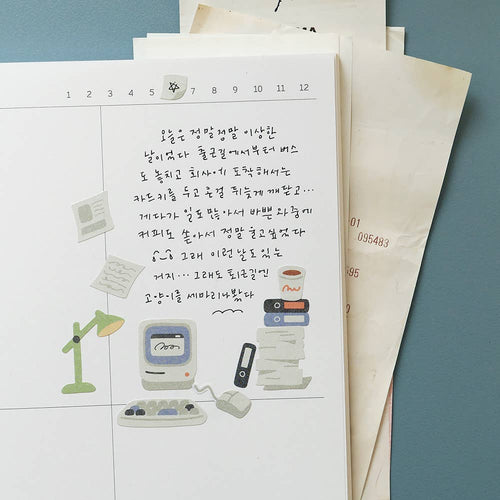 1 2 3 4 5 7 8 9 10 11 12
오늘은 정말정말 이상한
날이었다 출근길에서부터 버스
도 놓치고 회사에 도착해서는
카드키를 두고 온걸 뒤늦게 깨닫고...
게다가 일도 많아서 바쁜 와중에
커피도 쏟아서 정말 울고싶었다
그래 이런 날도 있는
거지... 그래도 퇴근길엔
고양이를 세마리나 봤다
-01
095483
595